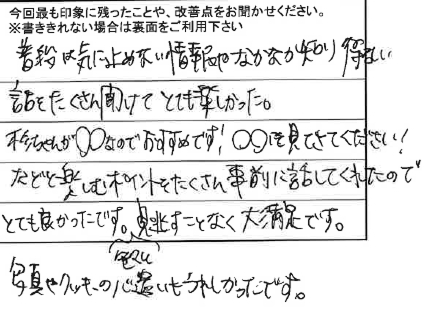 今回最も印象に残ったことや、改善点をお聞かせください。
※書ききれない場合は裏面をご利用下さい
普段は気に止めない情報やなかなか知り得ない
話をたくさん聞けてとても楽しかった。
ちゃんが○○なのでおすすめです!○○を見てきてください!
などと楽しむポイントをたくさん事前に話してくれたので
とても良かったです。見逃すことなく大満足です。
写真やクッキーの心遣いもうれしかったです。